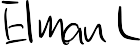 Elman L